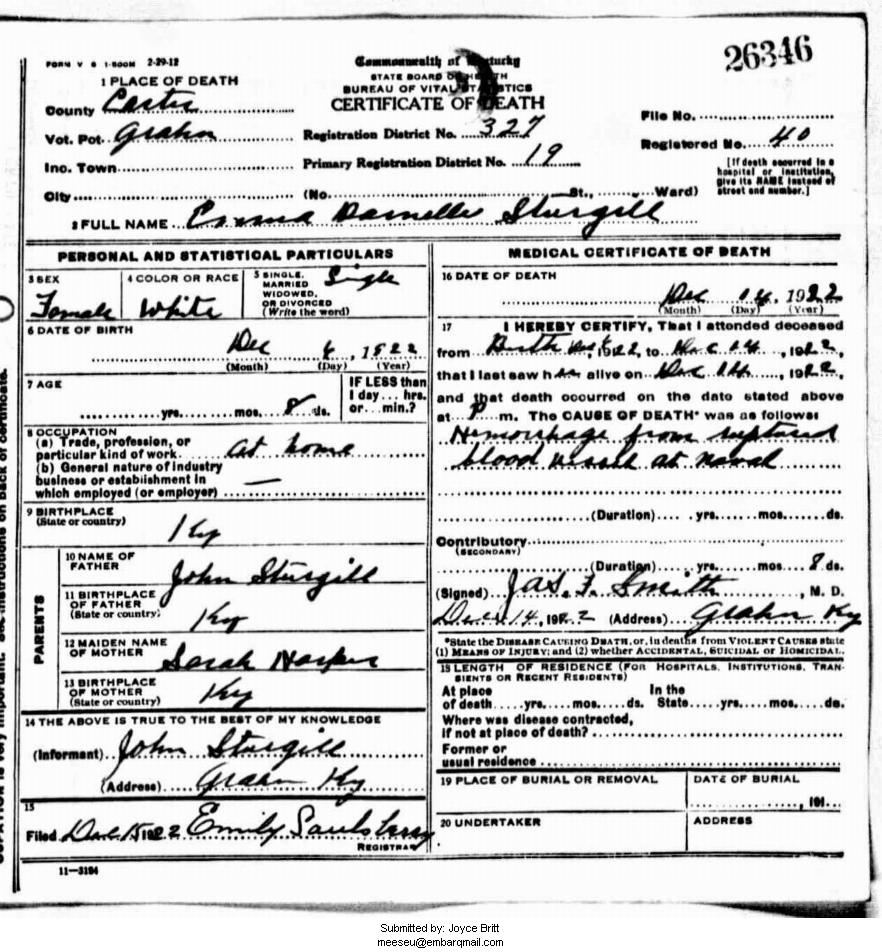 26346
FORM V S 1-500M 2-29-12
Commonwealth of Kentucky
STATE BOARD OF HEALTH
BUREAU OF VITAL STATISTICS
CERTIFICATE OF DEATH
1 PLACE OF DEATH
County Carter
Vot. Pct. Grahn
Inc. Town
City
Registration District No. 327
Primary Registration District No. 19
(No. St., Ward)
File No.
Registered No. 40
[If death occurred in a
hospital or institution,
give its NAME instead of
street and number.]
2 FULL NAME Emma Sturgill
PERSONAL AND STATISTICAL PARTICULARS
3 SEX
Female
4 COLOR OR RACE
White
5 SINGLE,
MARRIED
WIDOWED,
OR DIVORCED
(Write the word)
Single
6 DATE OF BIRTH
Dec 6, 1922
(Month) (Day) (Year)
7 AGE
yrs. mos. 8 ds.
IF LESS than
1 day... hrs.
or... min.?
8 OCCUPATION
(a) Trade, profession, or
particular kind of work at home
(b) General nature of industry
business or establishment in
which employed (or employer) —
9 BIRTHPLACE
(State or country)
Ky
PARENTS
10 NAME OF
FATHER
John Sturgill
11 BIRTHPLACE
OF FATHER
(State or country)
Ky
12 MAIDEN NAME
OF MOTHER
Sarah Harper
13 BIRTHPLACE
OF MOTHER
(State or country)
Ky
14 THE ABOVE IS TRUE TO THE BEST OF MY KNOWLEDGE
(Informant) John Sturgill
(Address) Grahn Ky
15
Filed Dec 15, 1922 Emily Saulsberry
REGISTRAR
11—3184
MEDICAL CERTIFICATE OF DEATH
16 DATE OF DEATH
Dec 14, 1922
(Month) (Day) (Year)
17 I HEREBY CERTIFY, That I attended deceased
from Birth 1922, to Dec 14, 1922,
that I last saw her alive on Dec 14, 1922,
and that death occurred on the date stated above
at P m. The CAUSE OF DEATH* was as follows:
Hemorrhage from ruptured
blood vessel at naval
(Duration) yrs. mos. ds.
Contributory
(SECONDARY)
(Duration) yrs. mos. 8 ds.
(Signed) Jas. F. Smith, M. D.
Dec 14, 1922 (Address) Grahn Ky
*State the DISEASE CAUSING DEATH, or, in deaths from VIOLENT CAUSES state
(1) MEANS OF INJURY; and (2) whether ACCIDENTAL, SUICIDAL or HOMICIDAL.
18 LENGTH OF RESIDENCE (FOR HOSPITALS, INSTITUTIONS, TRAN-
SIENTS OR RECENT RESIDENTS)
At place
of death yrs. mos. ds.
In the
State yrs. mos. ds.
Where was disease contracted,
if not at place of death?
Former or
usual residence
19 PLACE OF BURIAL OR REMOVAL
DATE OF BURIAL
, 191
20 UNDERTAKER
ADDRESS
Submitted by: Joyce Britt
meeseu@embarqmail.com